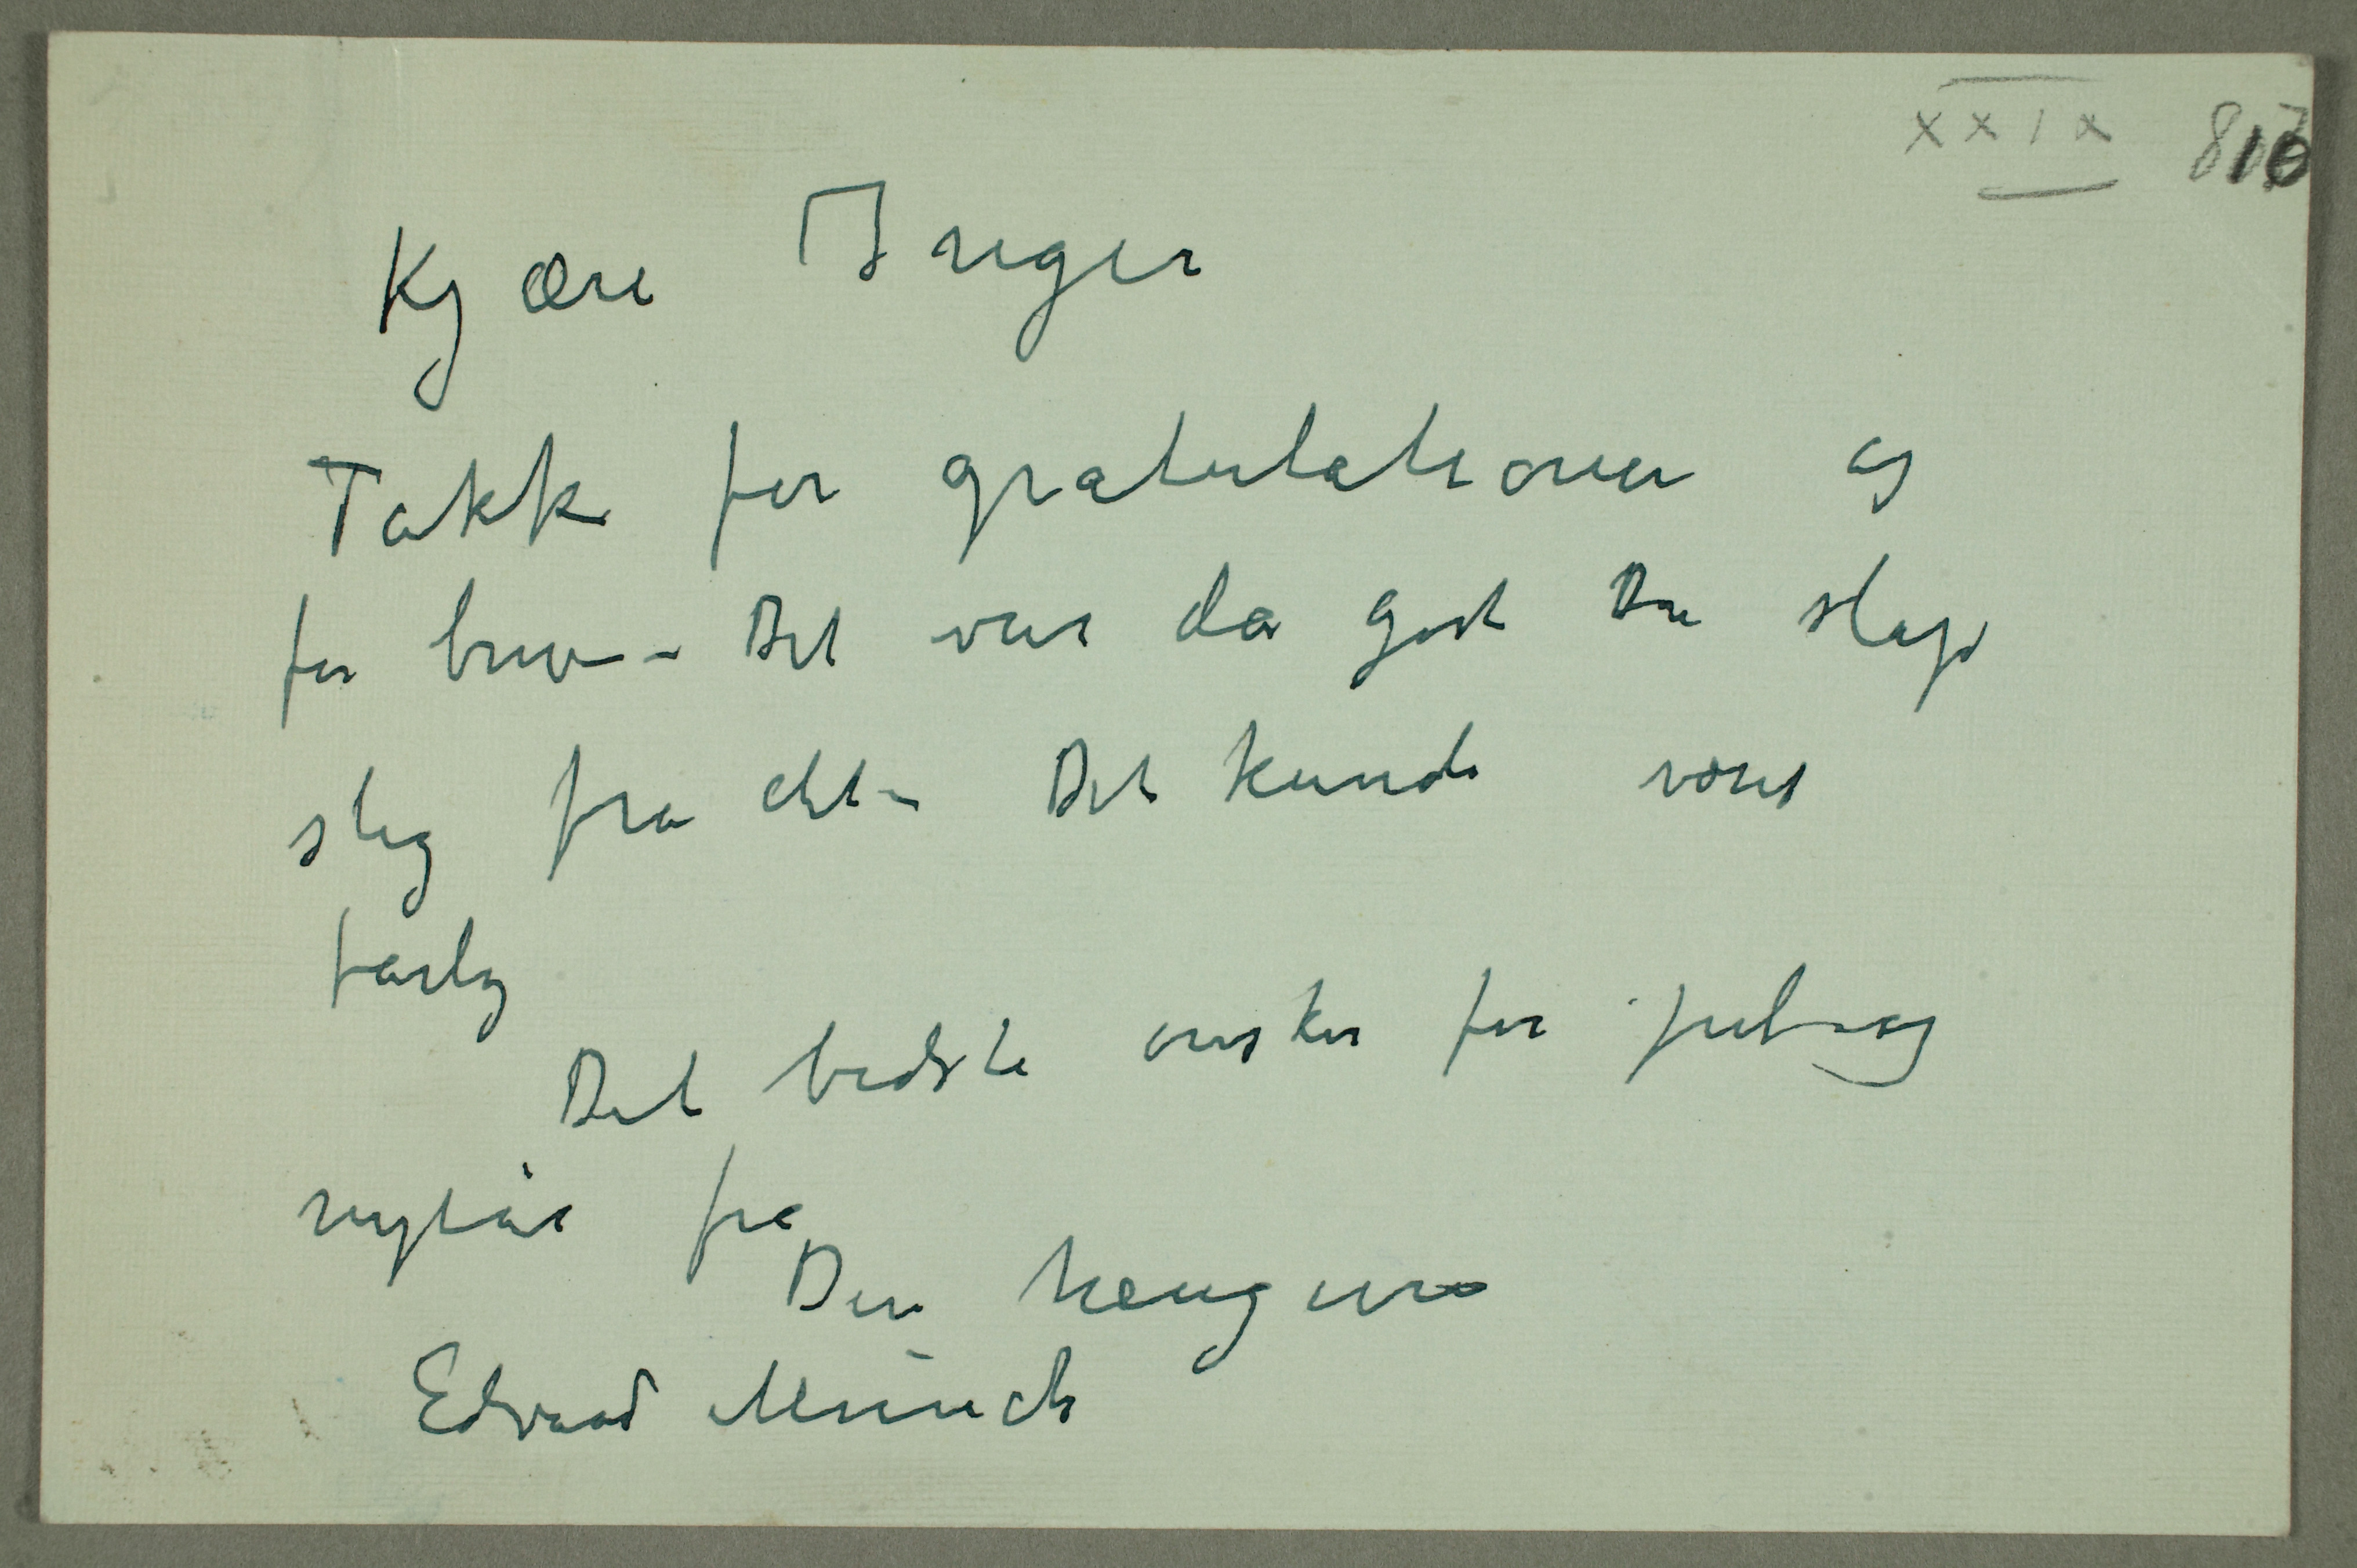 XXIX 810
Kjære Inger
Takk for gratulationer og
for brev – Det var da godt Du slap
slig fra det – Det kunde været
farlig
Det bedste ønsker for jul og
nytår fra
Din hengivne
Edvard Munch